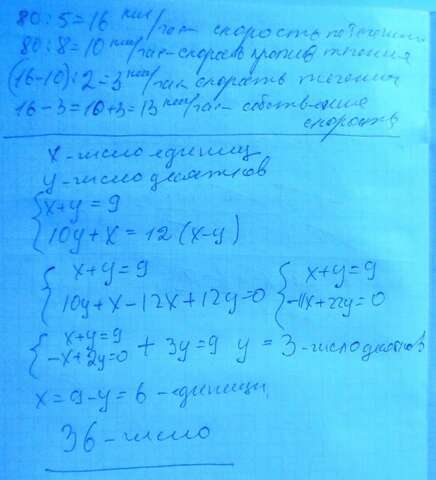 80 : 5 = 16 км/час - скорость по течению
80 : 8 = 10 км/час - скорость против течения
(16-10) : 2 = 3 км/час скорость течения
16 - 3 = 10 + 3 = 13 км/час - собственная
скорость
x - число единиц
y - число десятков
{ x + y = 9
10y + x = 12 (x - y)
{ x + y = 9
10y + x - 12x + 12y = 0
{ x + y = 9
-11x + 22y = 0
{ x + y = 9
-x + 2y = 0 + 3y = 9 y = 3 - число десятков
x = 9 - y = 6 - единицы
36 - число